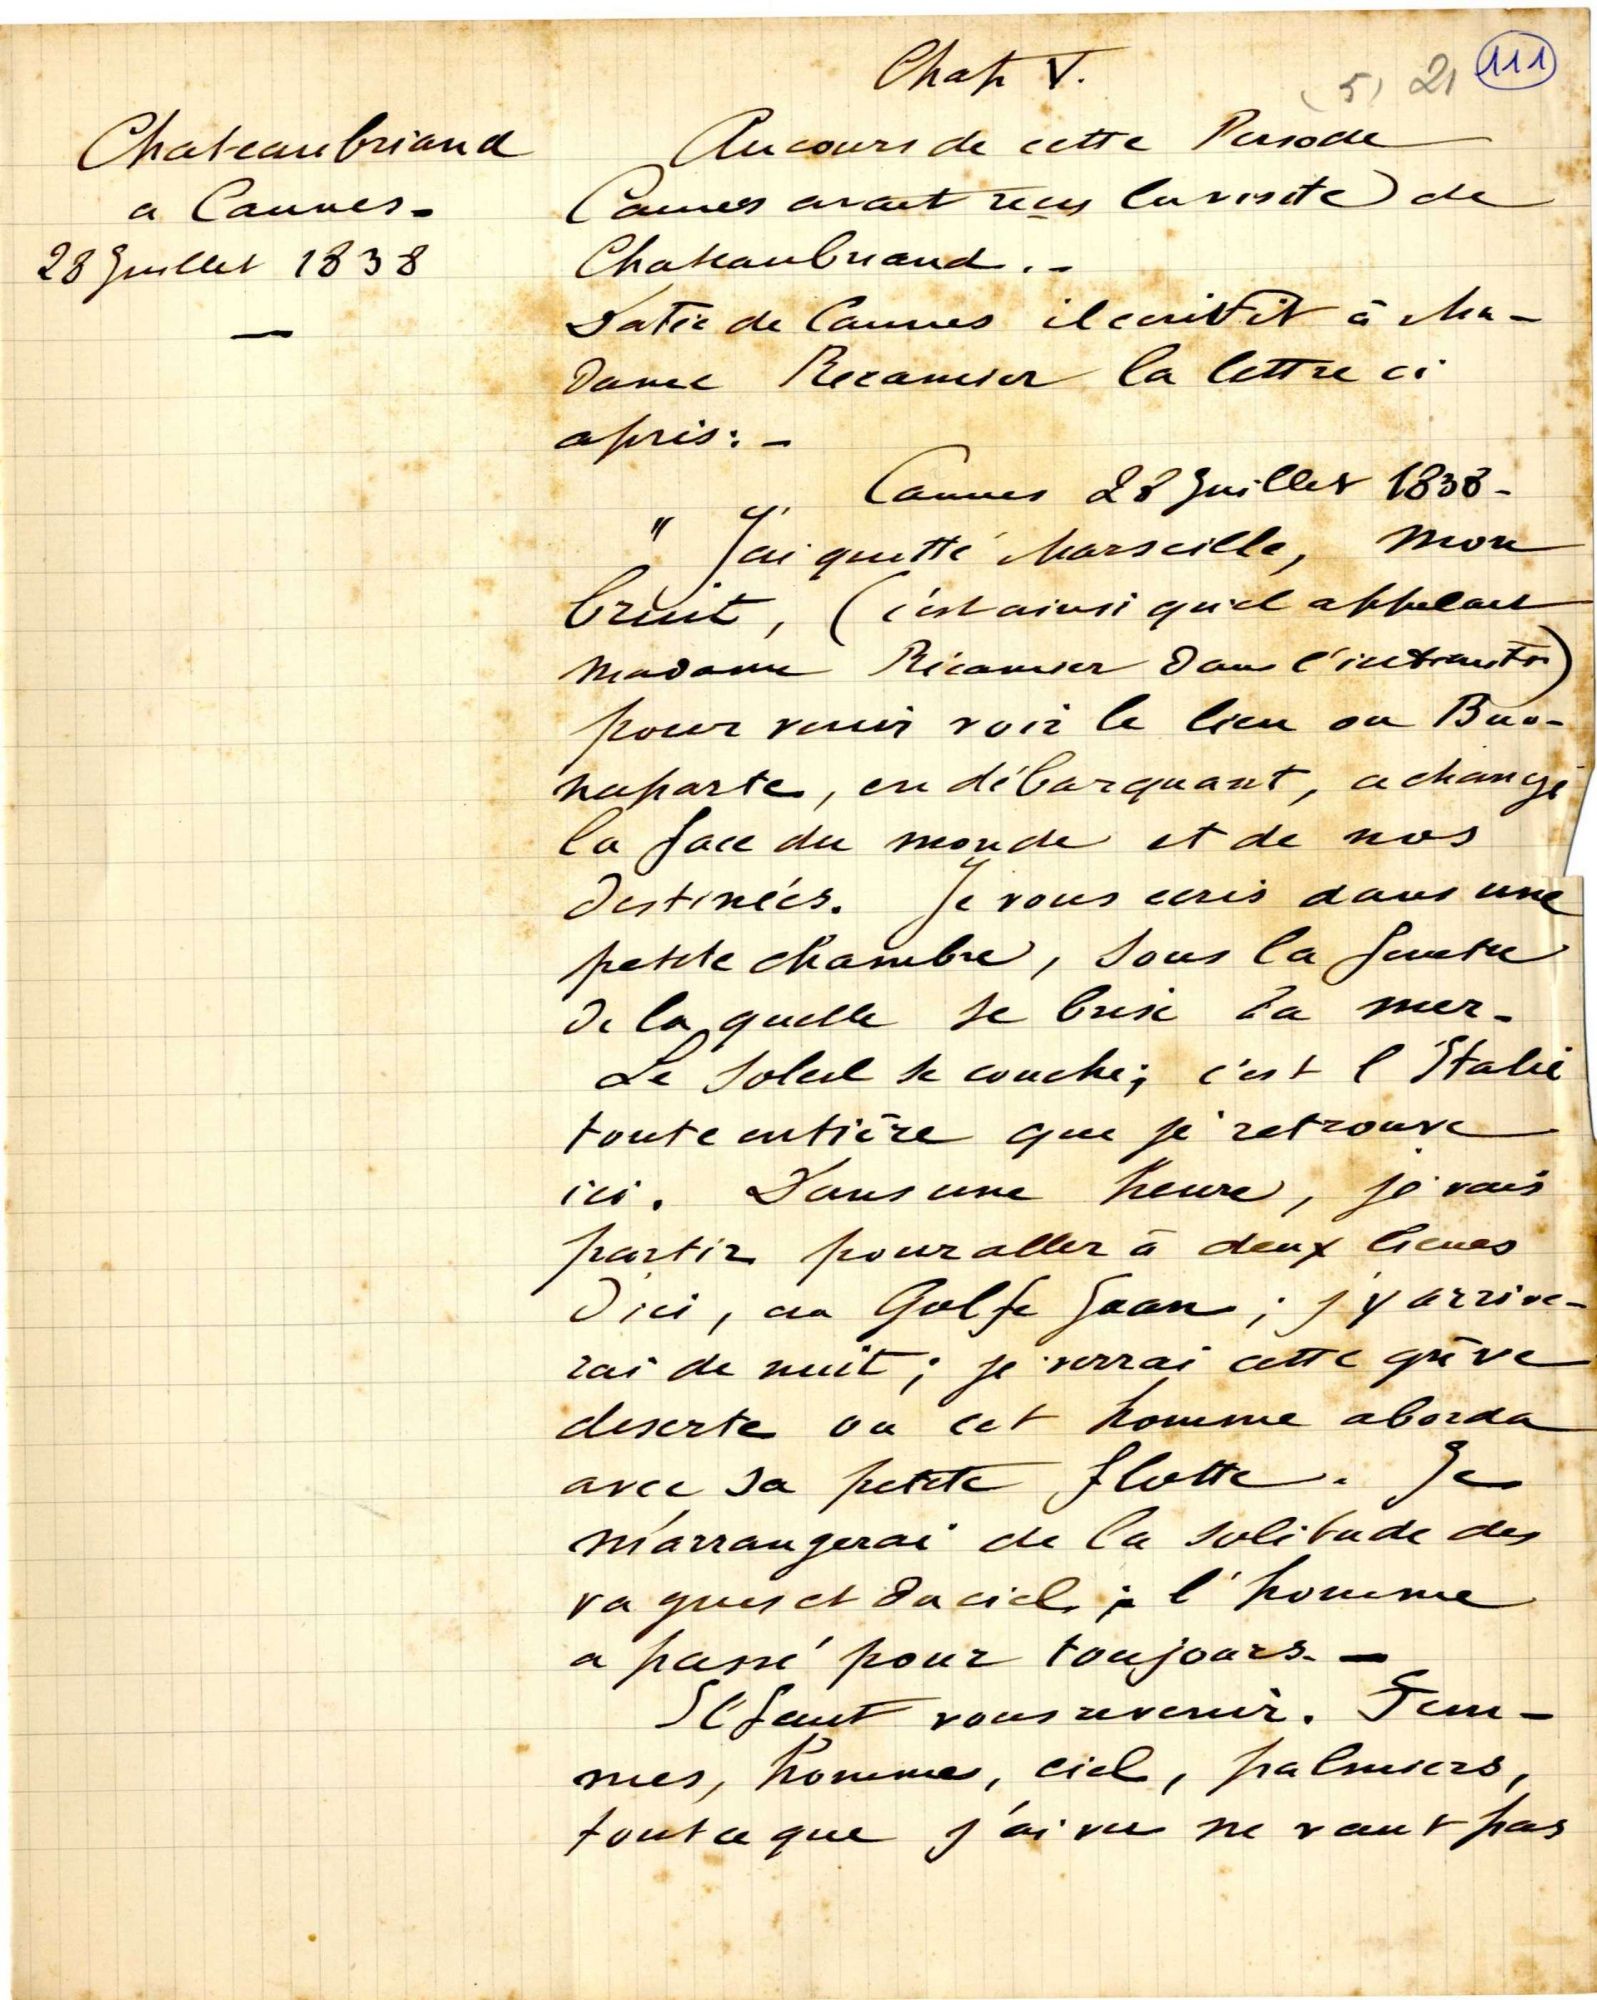 Chap V.
(5) 21 111
Chateaubriand
a Cannes -
28 Juillet 1838
—
Au cours de cette Periode
Cannes avait reçu la visite de
Chateaubriand . -
Datée de Cannes il écrivit à Ma-
dame Recamier la lettre ci
après : -
Cannes 28 Juillet 1838 -
" J'ai quitté Marseille, mon
bruit, (c'est ainsi qu'il appelait
madame Récamier dans l'intimité)
pour venir voir le lieu ou Buo-
naparte, en débarquant, a changé
la face du monde et de nos
destinées. Je vous ecris dans une
petite chambre, sous la fenetre
de la quelle se brise la mer -
Le Soleil se couche ; c'est l'Italie
toute entière que je retrouve
ici. Dans une heure, je vais
partir pour aller à deux lieues
d'ici, au Golfe Juan ; j'y arrive-
rai de nuit ; je verrai cette grève
deserte ou cet homme aborda
avec sa petite flotte. Je
m'arrangerai de la solitude des
vagues et du ciel ; l'homme
a passé pour toujours. —
Il faut vous revenir. Fem-
mes, hommes, ciel, palmiers,
tout ce que j'ai vu ne vaut pas